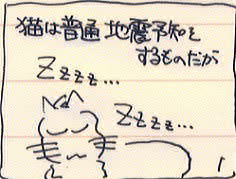 猫は普通地震予知を
するものだが
Zzzzz...
Zzzzz...
1